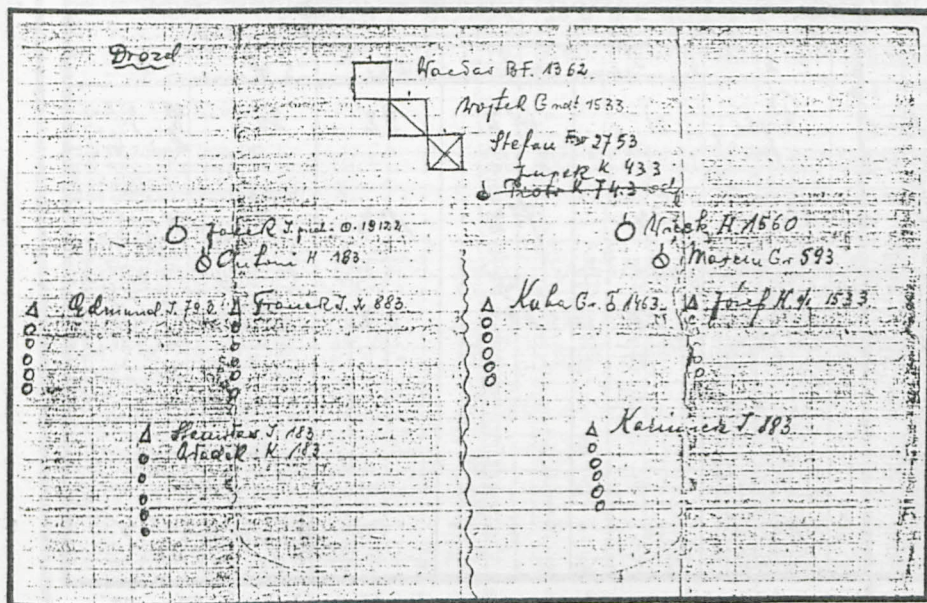 Drozd
Wacław B.F. 1362.
Wojtek G 1533
Stefan 2753
Lupek K 433
Piotr K 743
Janek J. 19122
Wicek H. 1560
Antoni H 183
Marcin Gr 593
Edmund J. 79
Franek J. 883.
Kuba Gr. 1463.
Józef H. 1533
Stanisław J 183
Władek K 183
Kazimierz J 883